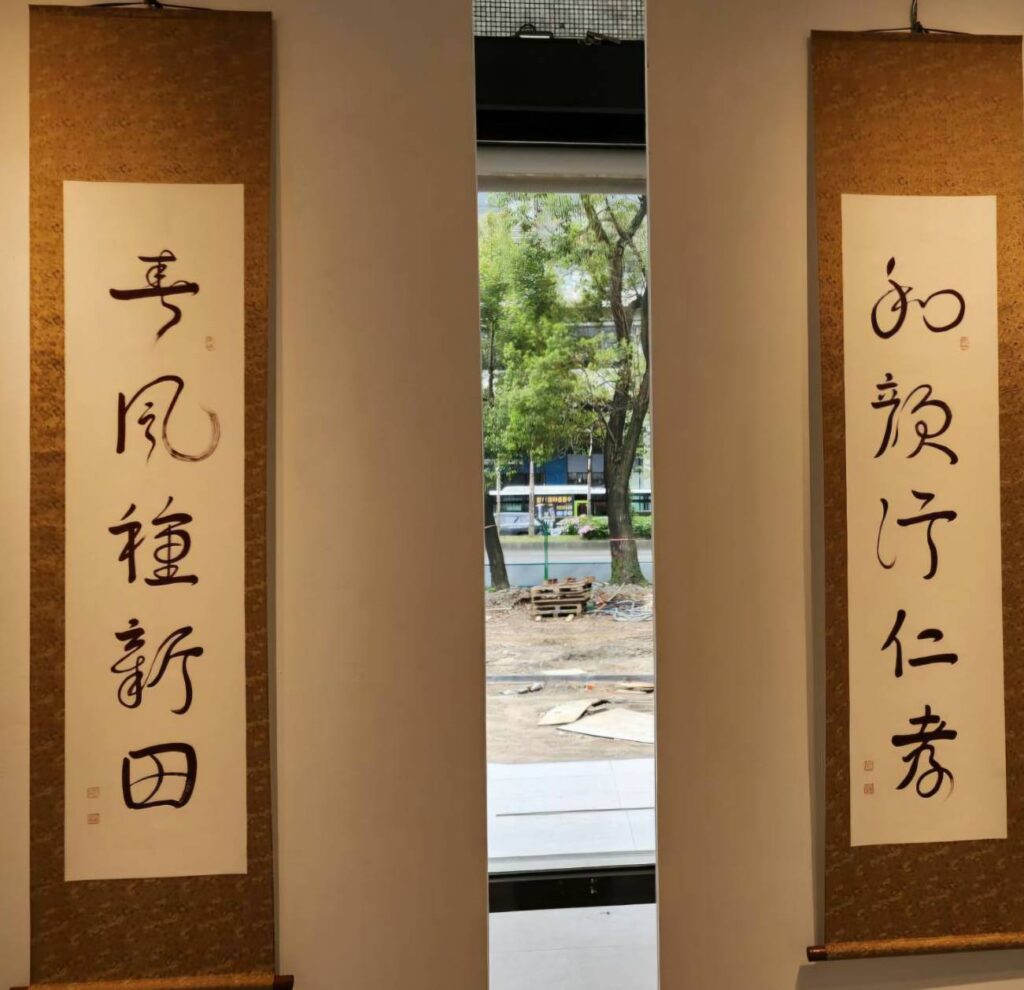 和顏行仁孝
春風種新田